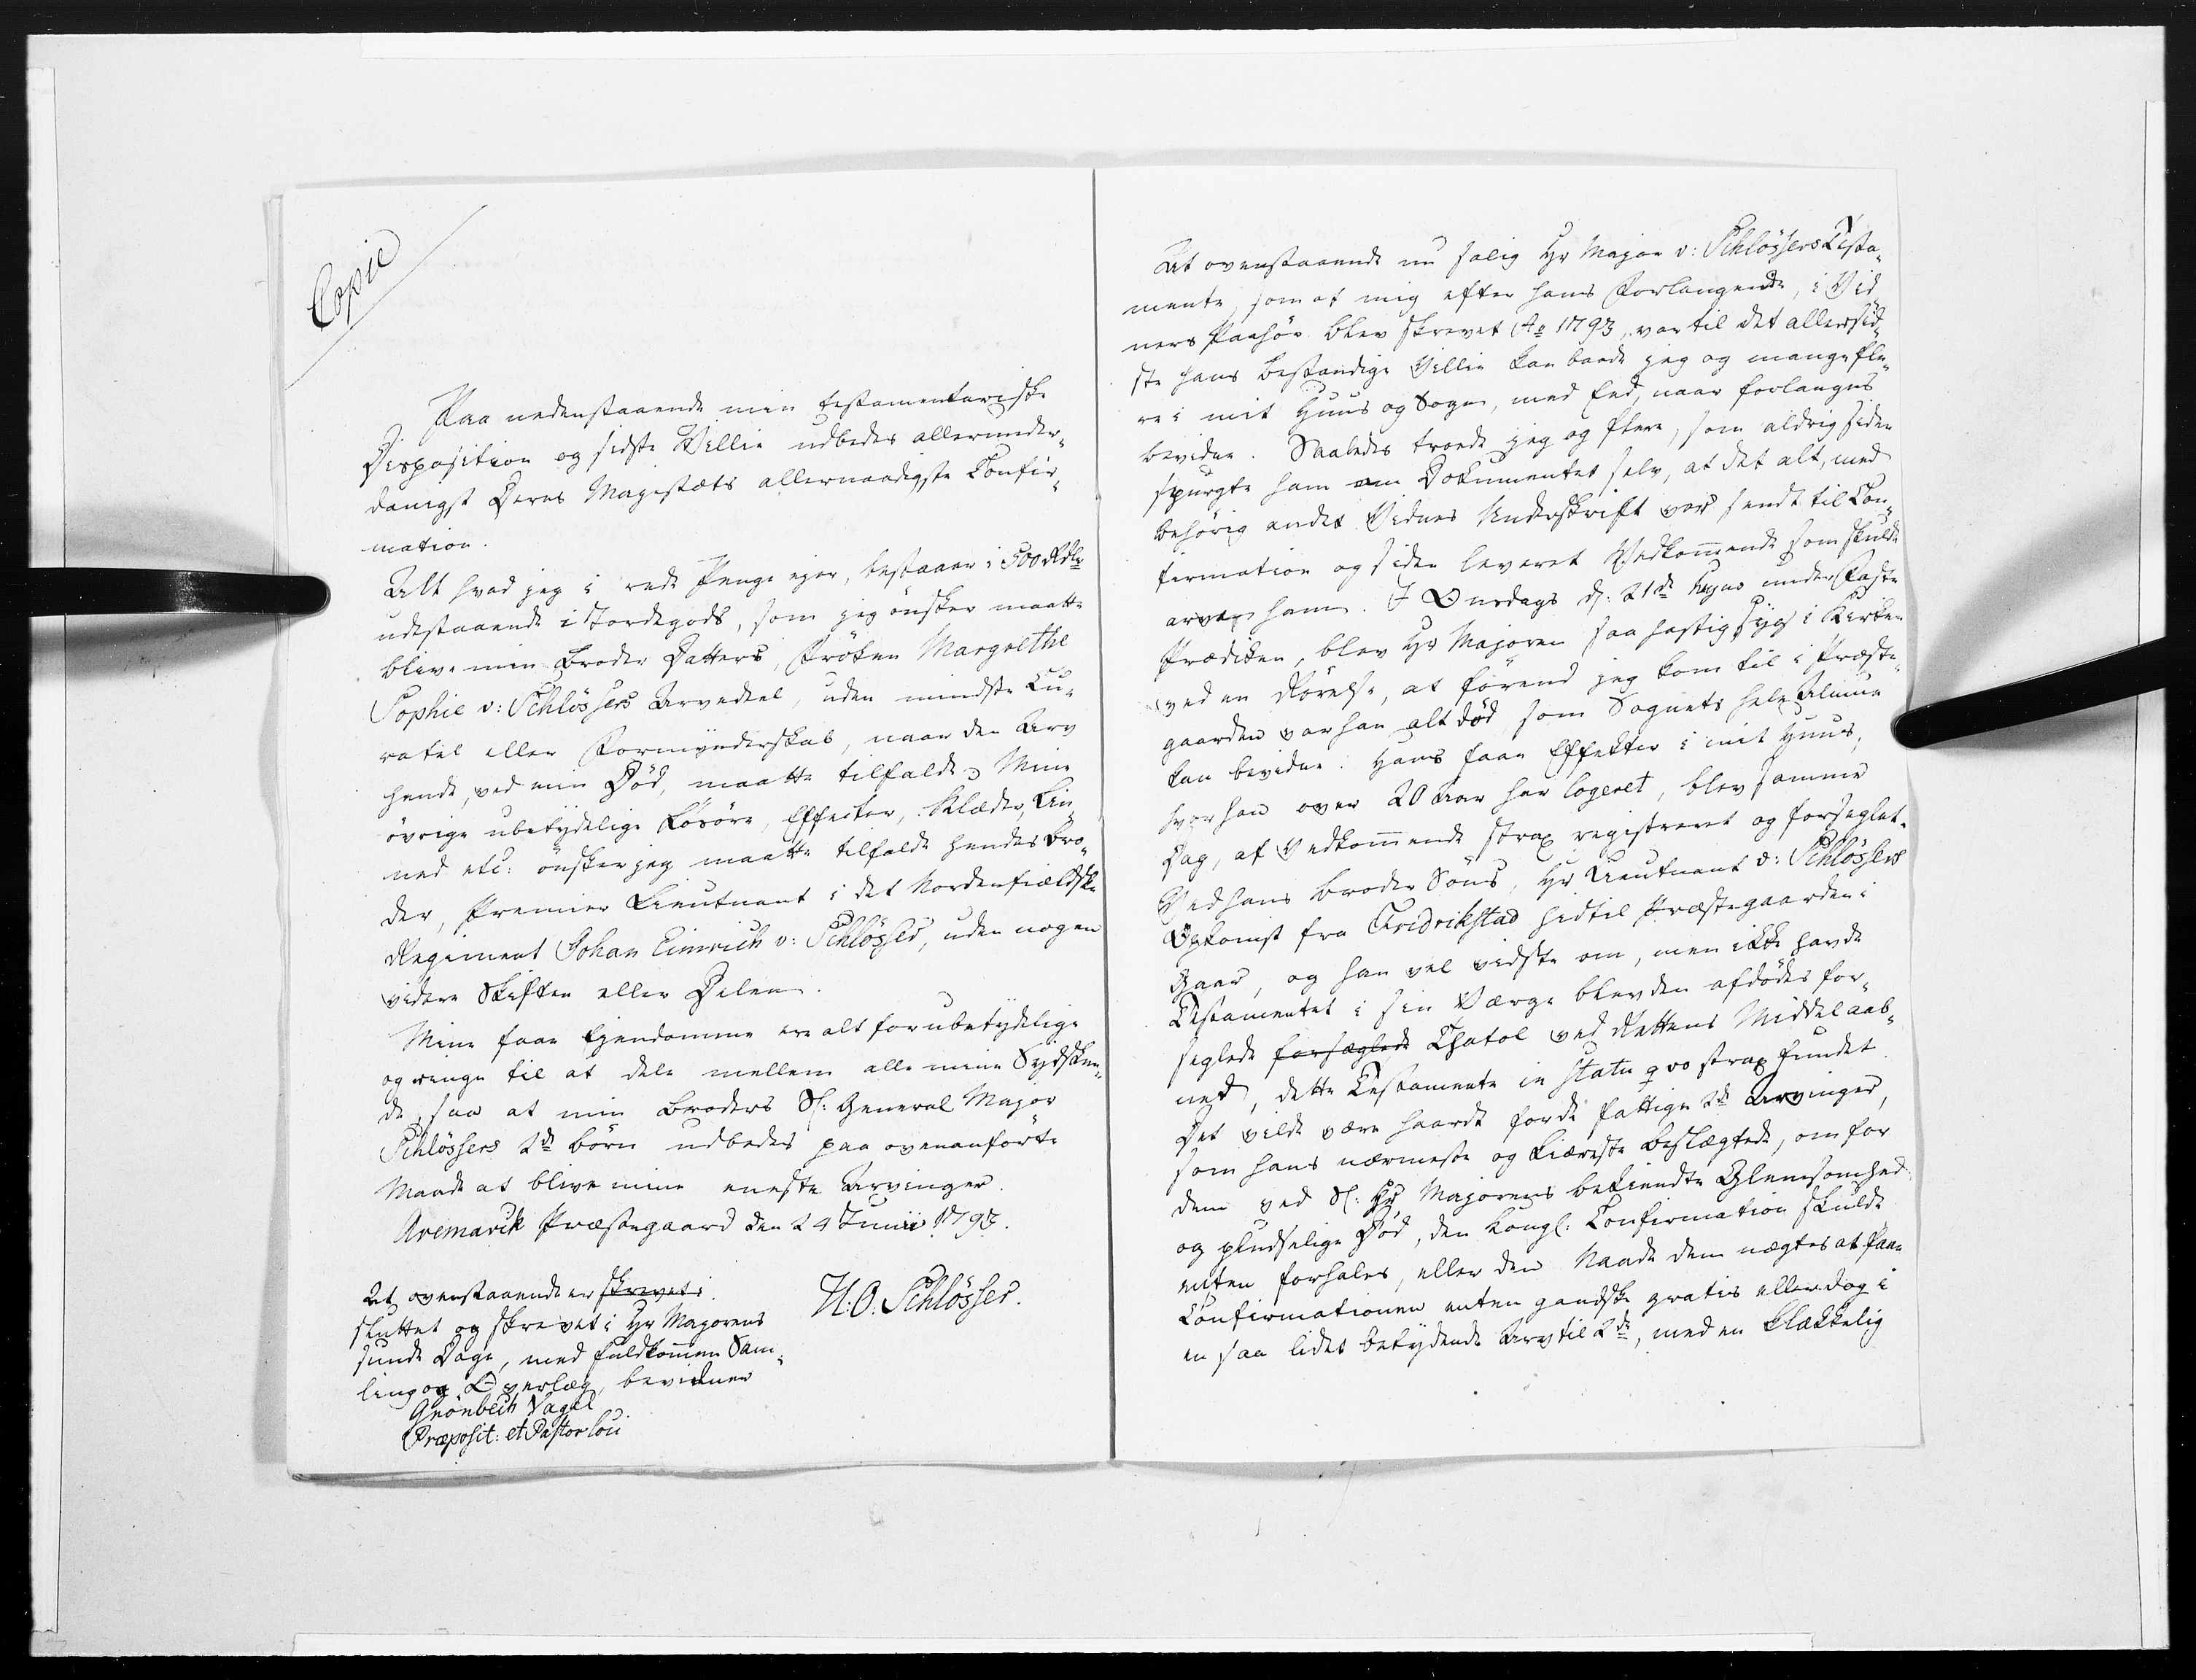 Copie
Paa nedenstaaende min testamentariske
Disposition og sidste Villie udbedes allerunder¬
danigst Deres Majestæts allernaadigste Confir¬
mation.
Alt hvad jeg i rede Penge ejer, bestaaer i 500 Rdlr
udestaaende i Jordegods, som jeg önsker maatte
blive min Broder Datters, Fröken Margrethe
Sophie v: Schlössers Arvedeel, uden mindste Cu¬
ratel eller Formÿnderskab, naar den Arv
hende, ved min Död, maatte tilfalde. Mine
övrige ubetÿdelige Lösöre, Effecter, Klæder, Lin¬
ned etc: önsker jeg maatte tilfalde hendes Bro¬
der, Premier Lieutnant i det Nordenfieldske
Regiment Johan Eimrich v: Schlösser, uden nogen
videre Skiften eller Delen.
Mine faae Ejendomme ere alt for ubetÿdelige
og ringe til at dele mellem alle mine Sÿdsken¬
de, saa at min Broders Sl: General Major
Schlössers 2de Börn udbedes paa ovenanförte
Maade at blive mine eneste Arvinger.
Aremarck Præstegaard den 24 Junii 1793.
H: O: Schlösser.
At ovenstaaende er skrevet i
sluttet og skrevet i Hr Majorens
sunde Dage, med fuldkommen Sam¬
ling og Overlæg, bevidner
Grönbech Vagel
Præposit: et Pastor loci
At ovenstaaende nu salig Hr Major v: Schlössers Testa¬
mente, som af mig efter hans Forlangende, i Vid¬
ners Paahör blev skrevet Ao 1793, var til det allersid¬
ste hans bestandige Villie kan baade jeg og mange fle¬
re i mit Huus og Sogn, med Eed, naar forlanges
bevidne. Saaledes troede jeg og flere, som aldrig siden
spurgte ham om Dokumentet selv, at det alt, med
behörig andet Vidnes Underskrift var sendt til Con¬
firmation og siden leveret Vedkommende som skulde
arve ham. I Onsdags d: 21de hujus under Faste
Prædiken, blev Hr Majoren saa hastig sÿg i Kirken
ved en Rörelse, at förend jeg kom til i Præste¬
gaarden var han alt död som Sognets hele Almue
kan bevidne. Hans faae Effekter i mit Huus,
hvor han over 20 Aar har logeret, blev samme
Dag, af Vedkommende strax registreret og forseglet.
Ved hans Broder Söns, Hr Lieutnant v: Schlössers
Opkomst fra Fridrikstad hidtil Præstegaarden i
Gaar, og han vel vidste om, men ikke havde
Testamentet i sin Værge blev den afdödes for¬
seglede forseglede Chatol ved Rettens Middel aab¬
net, dette Testamente in statu qvo strax fundet.
Det vilde være haardt for de fattige 2de Arvinger,
som hans nærmeste og kiæreste Beslægtede, om for
dem ved Sl: Hr Majorens bekiendte Glemsomhed
og pludselige Död, den kongl: Confirmation skulde
enten forhales, eller den Naade dem nægtes at faae
Confirmationen enten gandske gratis eller dog i
en saa lidet betÿdende Arv til 2de, med en klækkelig